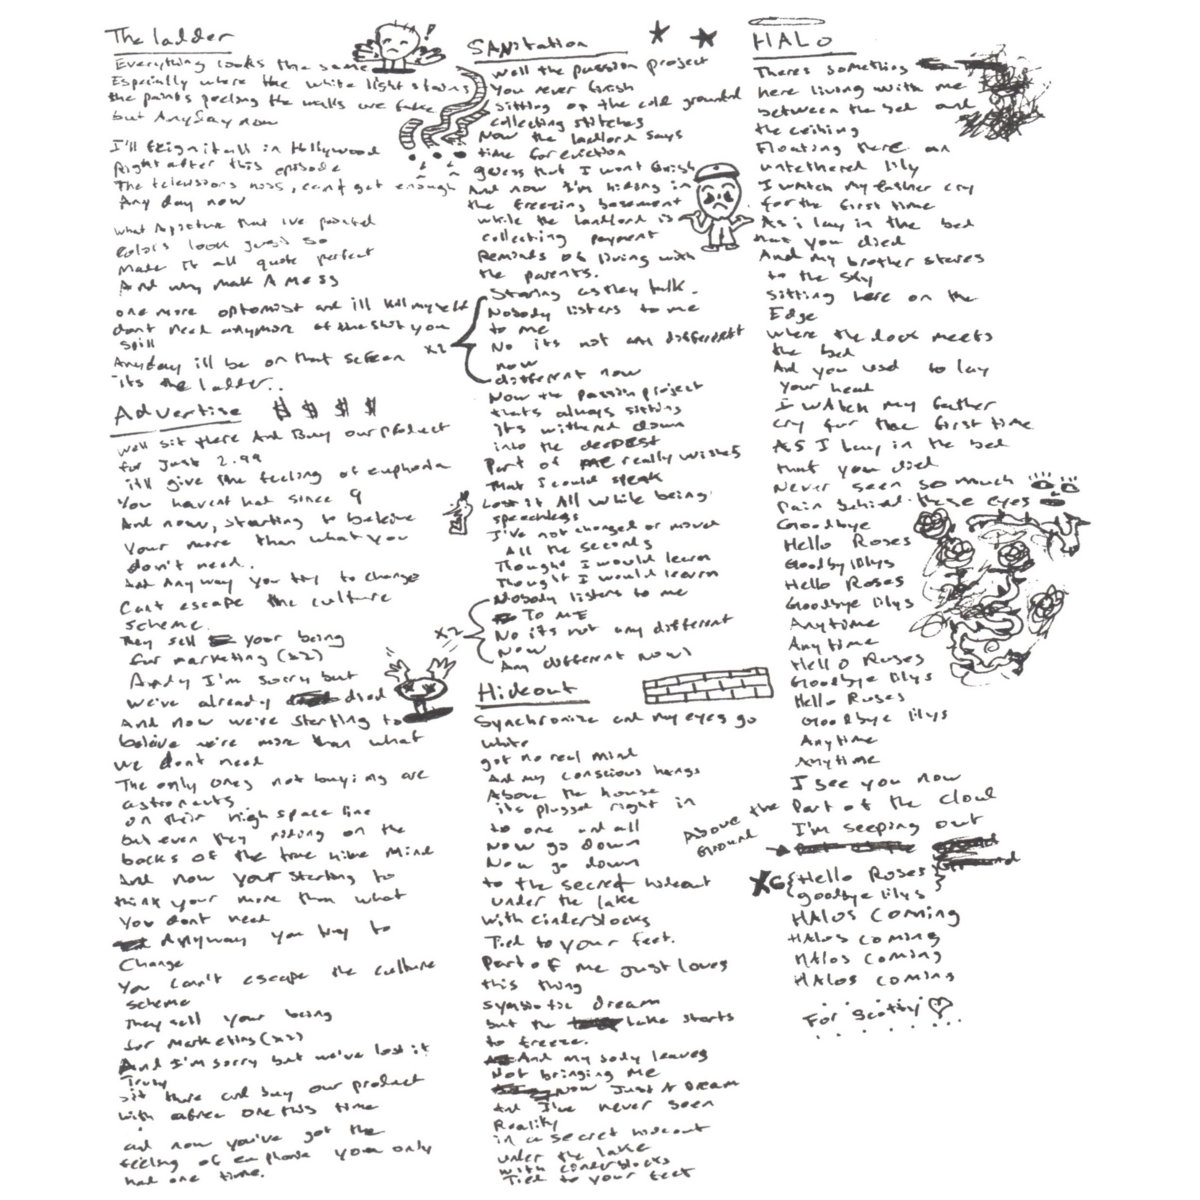 The ladder
Everything looks the same
Especially where the white light stains
the paints peeling the walls are fake
but Anyday now
I'll feign it all in Hollywood
Right after this episode
The televisions noss, cant get enough
Any day now
what A picture that ive painted
colors look just so
Make it all quote perfect
And why make A mess
one more optomist and ill kill myself
dont need anymore of the shit you
spill
Anyday ill be on that screen
its the ladder..
Advertise $ $ $ $
well sit there And Buy our product
for Just 2.99
itll give the feeling of euphoria
You havent had since 9
And now, starting to beleive
Your more than what you
don't need.
but Anyway you try to change
Cant escape the culture
scheme.
They sell your being
for marketing (x2)
Andy I'm sorry but
we've already died
And now we're starting to
beleive we're more than what
we dont need
The only ones not buying are
astronauts
on their high space line
but even they riding on the
backs of the true hive Mind
And now your starting to
think your more than what
You dont need
Anyway you try to
Change
You can't escape the culture
scheme
They sell your being
for marketing (x2)
And I'm sorry but we've lost it
Truly
sit there and buy our product
with a free one this time
and now you've got the
feeling of euphoria you only
had one time.
SANitation
Well the passion project
You never finish
Sitting on the cold ground
collecting stitches
Now the landlord says
time for eviction
guess that I wont finish
And now I'm hiding in
the freezing basement
while the landlord is
collecting payment
Reminds of living with
the parents.
Staring as they talk.
Nobody listens to me
to me
No its not any different
now
different now
x2
Now the passion project
thats always sitting
It's withered down
into the deepest
Part of me really wishes
That I could speak
Lost it All while being
speechless
I've not changed or moved
All the seconds
Thought I would learn
Thought I would learn
Nobody listens to me
To ME
No its not any different
Now
Any different Now)
x2
Hideout
Synchronize and my eyes go
white
got no real mind
And my conscious hangs
Above the house
its plugged right in
to one and all
Now go down
Now go down
to the secret hideout
under the lake
with cinderblocks
Tied to your feet.
Part of me just loves
this thing
symbiotic dream
but the lake starts
to freeze.
And my body leaves
Not bringing me
Now Just A dream
And I've never seen
Reality
in a secret hideout
under the lake
with cinderblocks
Tied to your feet
HALO
Theres something
here living with me
between the bed and
the ceiling
Floating here an
untethered lily
I watch my father cry
for the first time
As i lay in the bed
that you died
And my brother stares
to the sky
Sitting here on the
Edge
where the dock meets
the bed
And you used to lay
your head
I watch my father
cry for the first time
AS I lay in the bed
that you died
Never seen so much
Pain behind these eyes
Goodbye
Hello Roses
Goodby lilys
Hello Roses
Goodbye lilys
Anytime
Anytime
Hello Roses
Goodbye lilys
Hello Roses
Goodbye lilys
Anytime
Anytime
I see you now
Part of the cloud
I'm seeping out
Above the
Ground
X6 {Hello Roses}
{goodbye lilys}
HAlos coming
HAlos coming
HAlos coming
HAlos coming
For Scotty ♡